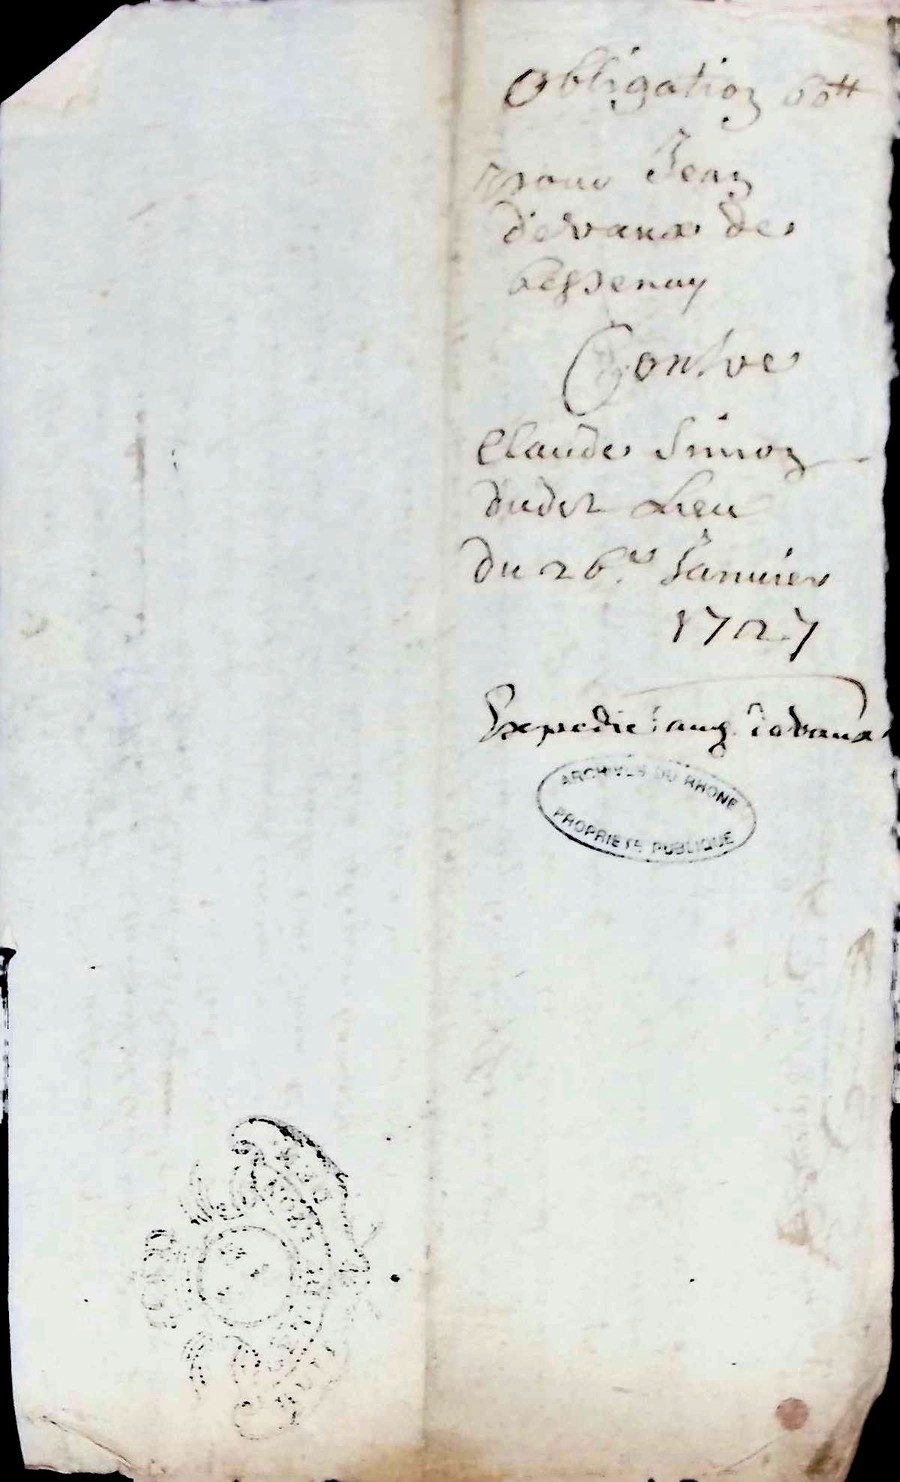 Obligation 60tt
pour Jean
devaux de
bessenay
Contre
Claude Simon
dudit Lieu
du 26e Janvier
1727
Expedié aud. devaux
ARCHIVES DU RHONE
PROPRIETE PUBLIQUE